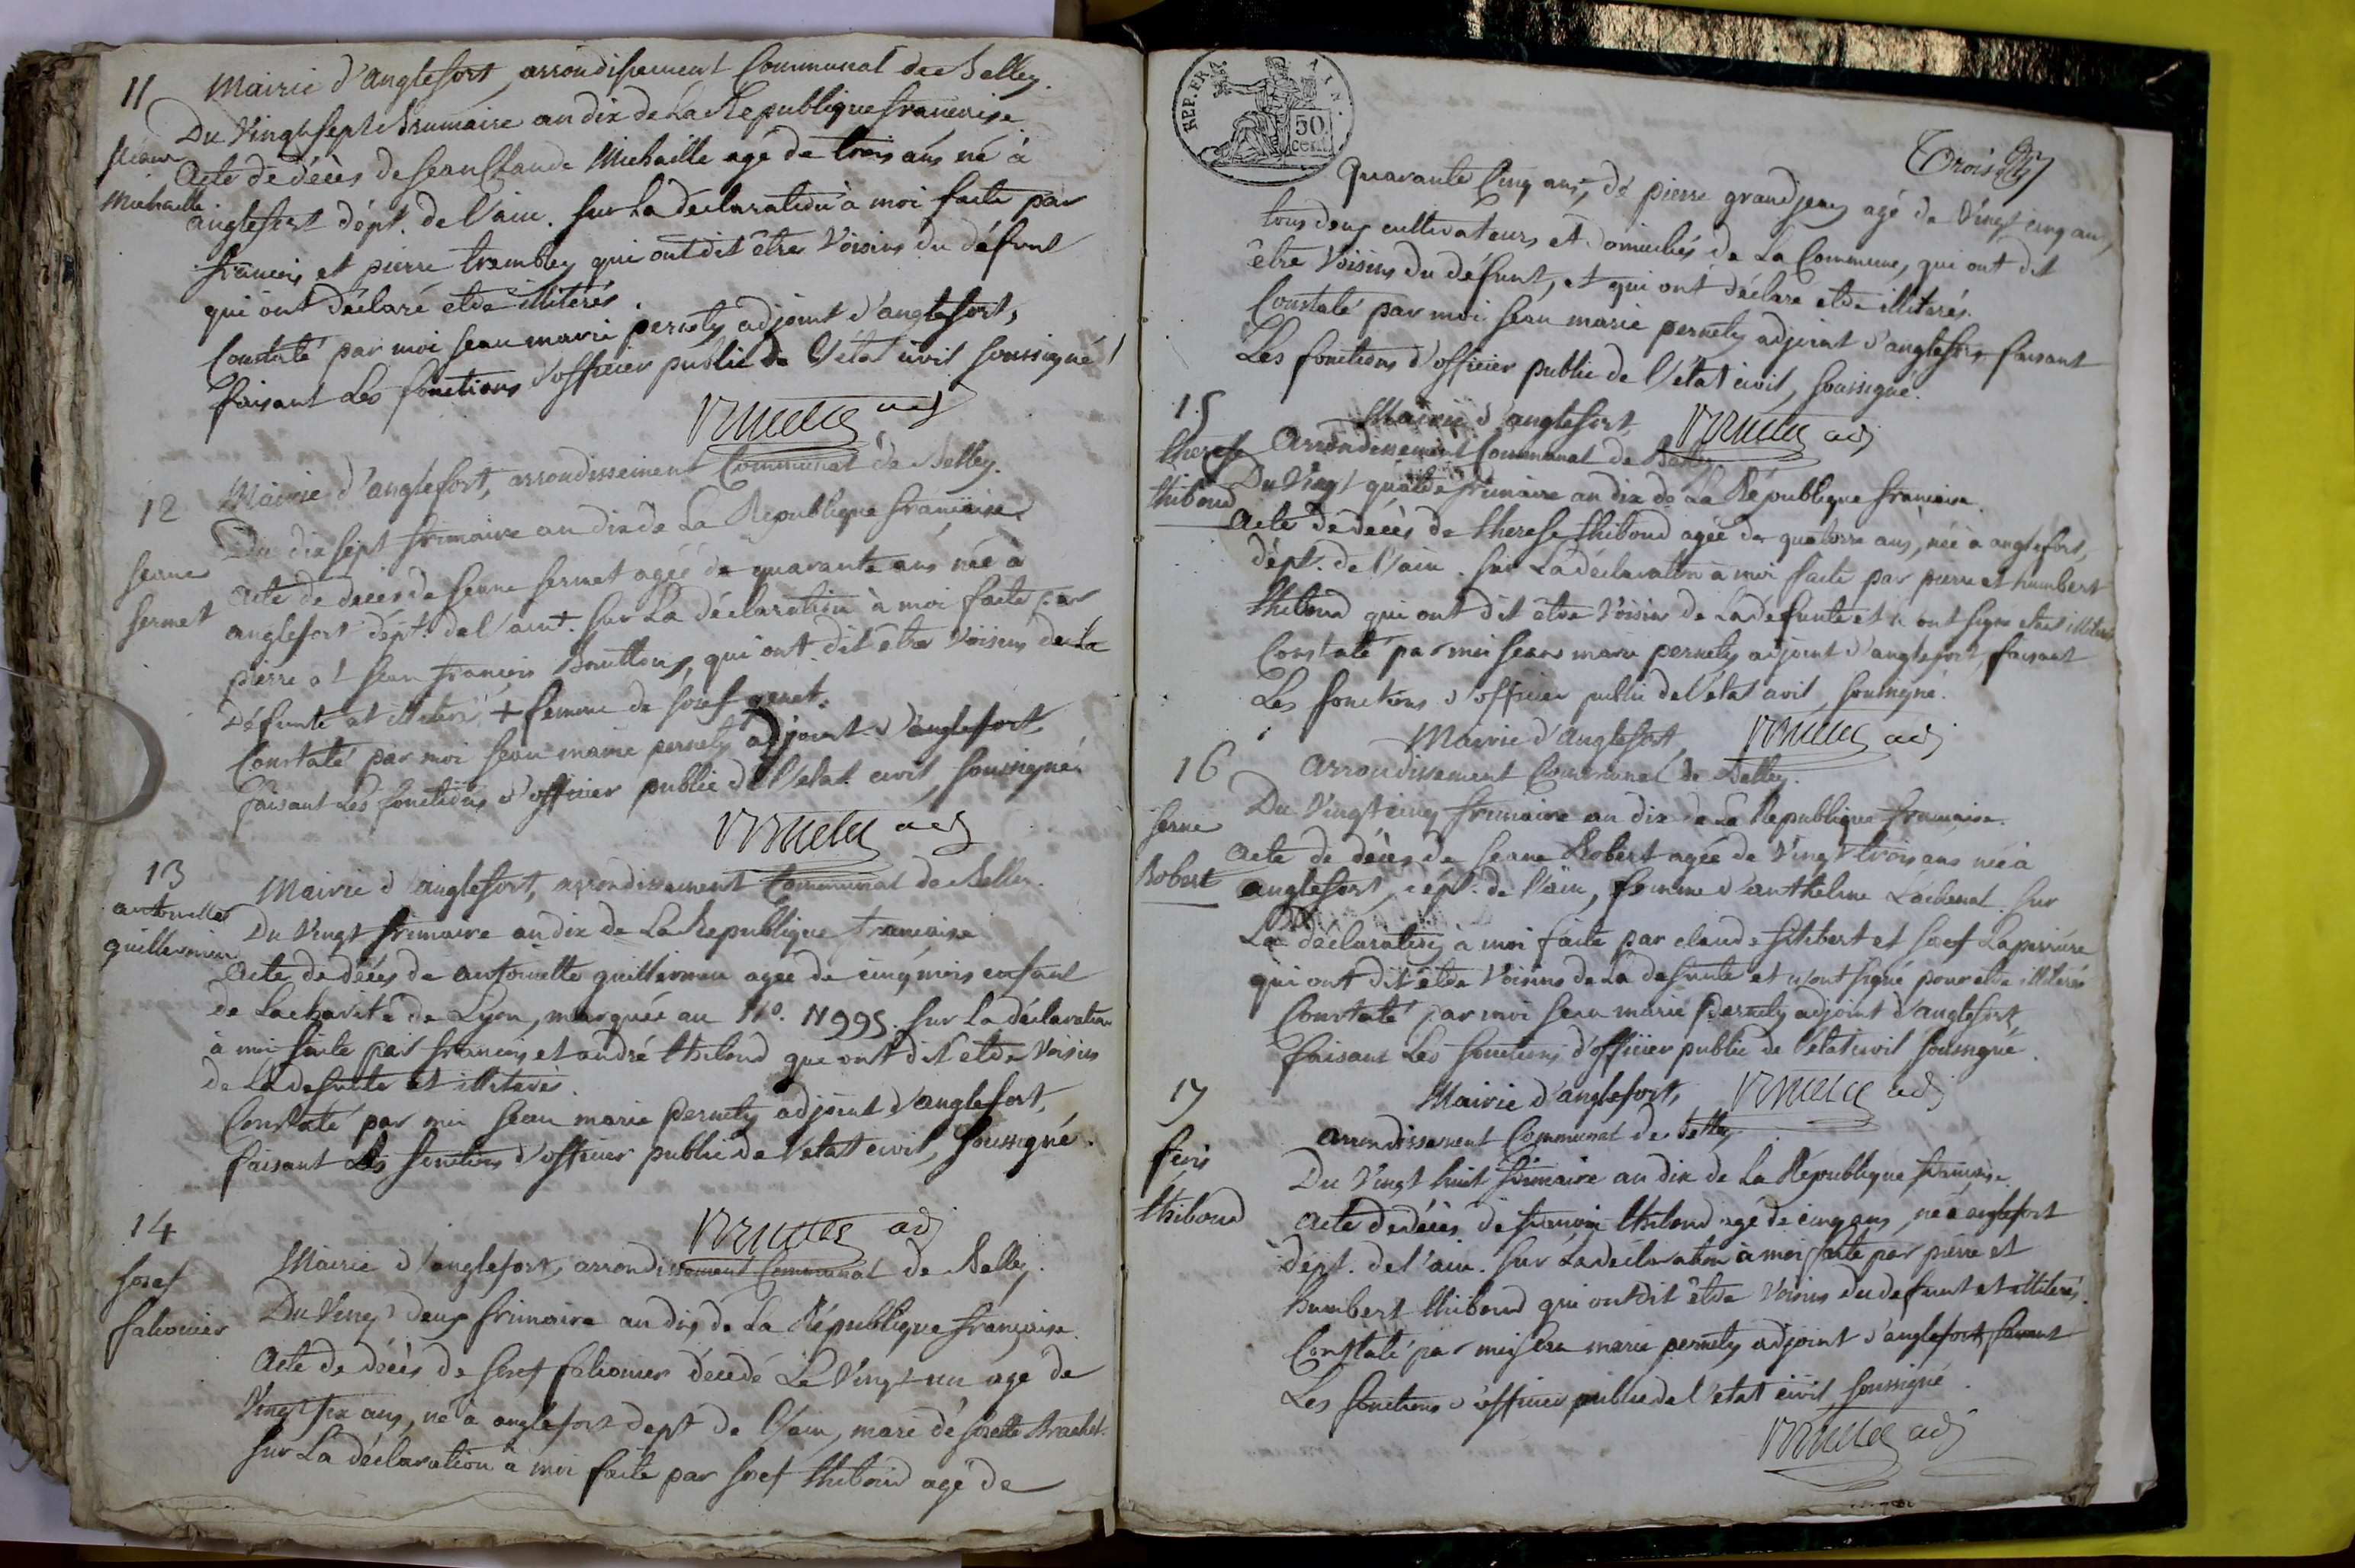 11
Mairie d'anglefort, arrondissement Communal de Belley.
Du Vingt sept Brumaire an dix de La Republique francoise
Jean
Michaille
Acte de décès de Jean Claude Michaille agé de trois ans né à
anglefort dépt. de l'ain. Sur La déclaration à moi faite par
francois et pierre trembley qui ont dit être Voisins du défunt
qui ont déclaré etde illiterés.
Constaté par moi Jean marie pernety adjoint d'anglefort,
faisant Les fonctions d'officier public de l'état civil soussigné
adj
12
Mairie d'anglefort, arrondissement Communal de Belley.
Du dix sept frimaire an dix de La Republique francoise
Jeanne
Sermet
acte de deces de Jeanne Sermet agée de quarante ans née à
anglefort dépt. de l'ain + Sur La déclaration à moi faite par
pierre et Jean francois, qui ont dit être Voisins de La
Défunte et illiteré + femme de Josef genet.
Constaté par moi Jean marie pernety adjoint d'anglefort
faisant Les fonctions d'officier public de l'etat civil, Soussigné
adj
13
Mairie d'anglefort, arrondissement Communal de Belley.
antoinette
guillermin
Du Vingt frimaire an dix de La Republique francaise
Acte de décès de antoinette guillermin agée de cinq mois enfant
de La charité de Lyon, marquée au N°. 11995. Sur La déclaration
à moi faite par francois et andré thiboud qui ont dit etde Voisins
de La defunte et illiterés.
Constaté par moi Jean marie Pernety adjoint d'anglefort,
faisant Les fonctions d'officier public de l'etat civil, Soussigné.
adj
14
Mairie d'anglefort, arrondissement Communal de Belley.
Josef
falconier
Du Vingt deux frimaire an dix de La République françoise.
Acte de décès de Josef falconier décedé Le Vingt un agé de
Vingt six ans, né à anglefort dept de l'ain, mari de Brachet.
Sur La déclaration à moi faite par Josef thiboud agé de
REP. FRA.
AIN.
50
cent
Trois
Quarante Cinq ans, de pierre grandjean agé de Vingt cinq ans,
tous deux cultivateurs et domiciliés de La Commune, qui ont dit
être Voisins du défunt, et qui ont déclaré etde illiterés.
Constaté par moi Jean marie pernety adjoint d'anglefort, faisant
Les fonctions d'officier public de l'etat civil, Soussigné.
adj
15
Mairie d'anglefort,
Arrondissement Communal de Belley
therese
thiboud
Du Vingt quatre frimaire an dix de La République francaise.
acte de décès de therese thiboud agée de quatorze ans, née à anglefort,
dépt. de l'ain. Sur La déclaration à moi faite par pierre et humbert
thiboud qui ont dit être Voisins de La défunte et n'ont signé
Constaté par moi Jean marie pernety adjoint d'anglefort, faisant
Les fonctions d'officier public de l'etat civil, soussigné.
adj
16
Mairie d'anglefort,
arrondissement Communal de Belley.
Jeanne
Robert
Du Vingt cinq frimaire an dix de La Republique francaise.
Acte de décès de Jeane Robert agée de Vingt trois ans née à
anglefort, dépt. de l'ain, femme d'anthelme Lachenal. Sur
La déclaration à moi faite par claude et Josef Laperrière
qui ont dit etde Voisins de La defunte et n'ont signé pour etde illiterés
Constaté par moi Jean marie Pernety adjoint d'anglefort,
faisant Les fonctions d'officier public de l'etat civil soussigné.
adj
17
Mairie d'anglefort,
arrondissement Communal de Belley
thiboud
Du Vingt huit frimaire an dix de La République francoise.
Acte de décès de francois thiboud agé de cinq ans, né à anglefort
dépt. de l'ain. Sur La déclaration à moi faite par pierre et
humbert thiboud qui ont dit être Voisins du defunt et illiterés.
Constaté par moi Jean marie pernety adjoint d'anglefort, faisant
Les fonctions d'officier public de l'etat civil, soussigné.
adj